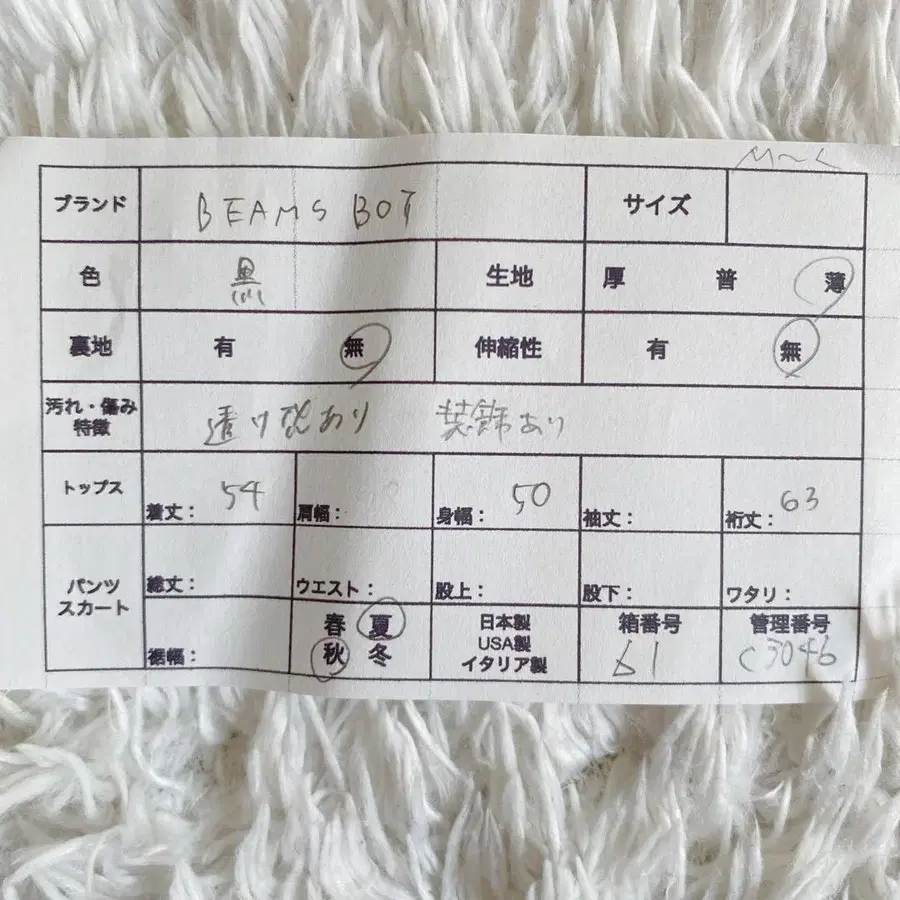 M〜L
ブランド BEAMS BOY サイズ
色 黒 生地 厚 普 薄
裏地 有 無 伸縮性 有 無
汚れ・傷み 特徴 透け感あり 装飾あり
トップス 着丈: 54 肩幅: 身幅: 50 袖丈: 裄丈: 63
パンツ スカート 総丈: ウエスト: 股上: 股下: ワタリ:
裾幅: 春 夏 秋 冬 日本製 USA製 イタリア製 箱番号 61 管理番号 C3046